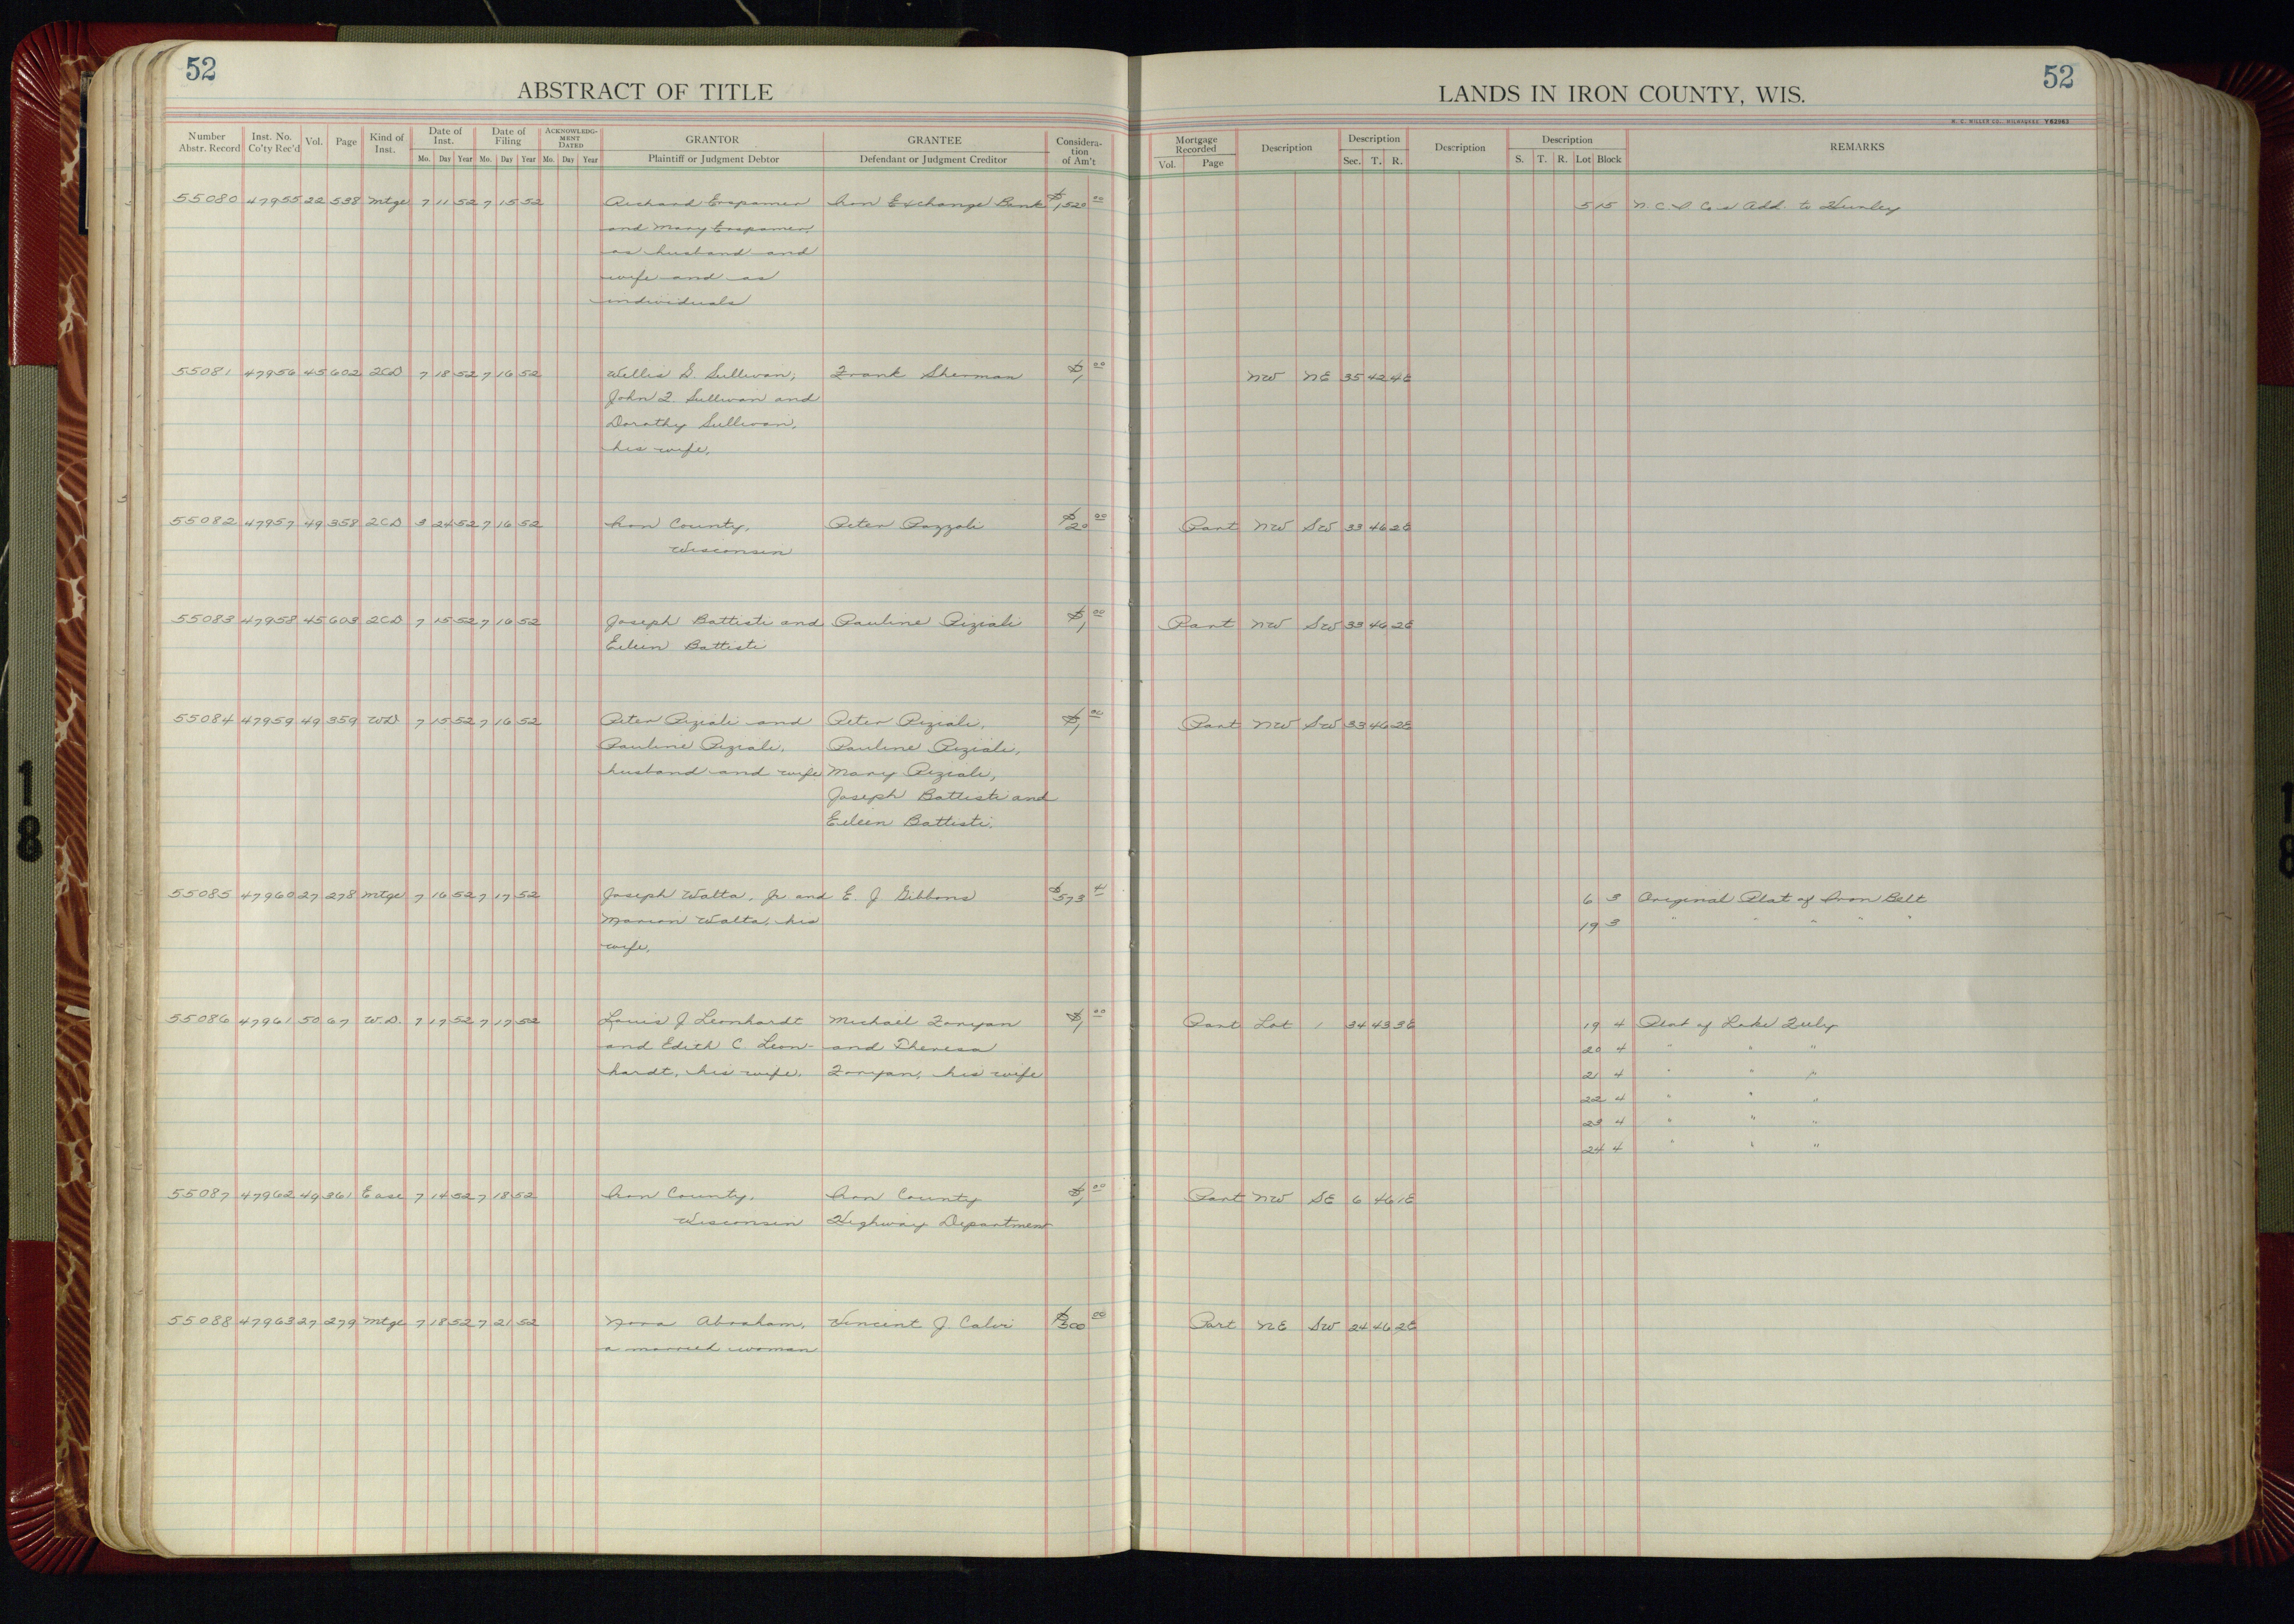 52
ABSTRACT OF TITLE
LANDS IN IRON COUNTY, WIS.
52
M. C. MILLER CO. MILWAUKEE Y62963
Number Abstr. Record | Inst. No. Co'ty Rec'd | Vol. | Page | Kind of Inst. | Date of Inst. Mo. Day Year | Date of Filing Mo. Day Year | ACKNOWLEDGMENT DATED Mo. Day Year | GRANTOR Plaintiff or Judgment Debtor | GRANTEE Defendant or Judgment Creditor | Consideration of Am't
Mortgage Recorded Vol. Page | Description | Description Sec. T. R. | Description | Description S. T. R. Lot Block | REMARKS
55080 47955 22 538 Mtge 7 11 52 7 15 52 Richard Erspamer Iron Exchange Bank $1,520 00 5 15 N. C. & Co's Add. to Hurley
and Mary Erspamer,
as husband and
wife and as
individuals
55081 47956 45 602 2CD 7 18 52 7 16 52 Willis G. Sullivan, Frank Sherman $1 00 NW NE 35 42 4E
John L. Sullivan and
Dorothy Sullivan,
his wife,
55082 47957 49 358 2CD 3 24 52 7 16 52 Iron County, Peter Pozzoli $20 00 Part NW SW 33 46 2E
Wisconsin
55083 47958 45 603 2CD 7 15 52 7 16 52 Joseph Battisti and Pauline Piziali $1 00 Part NW SW 33 46 2E
Eileen Battisti
55084 47959 49 359 WD 7 15 52 7 16 52 Peter Piziali and Peter Piziali, $1 00 Part NW SW 33 46 2E
Pauline Piziali, Pauline Piziali,
husband and wife Mary Piziali,
Joseph Battisti and
Eileen Battisti.
55085 47960 27 278 Mtge 7 16 52 7 17 52 Joseph Walta, Jr and E. J Gibbons $573 6 3 Original Plat of Iron Belt
Marion Walta, his 19 3 " " " " "
wife,
55086 47961 50 67 W.D. 7 17 52 7 17 52 Louis J Leonhardt Michael Zonyan $1 00 Part Lot 1 34 43 3E 19 4 Plat of Lake Tuly
and Edith C. Leon- and Theresa 20 4 " " "
hardt, his wife, Zonyan, his wife 21 4 " " "
22 4 " " "
23 4 " " "
24 4 " " "
55087 47962 49 361 Ease 7 14 52 7 18 52 Iron County, Iron County $1 00 Part NW SE 6 46 1E
Wisconsin Highway Department
55088 47963 27 279 Mtge 7 18 52 7 21 52 Nora Abraham, Vincent J. Calvi $300 00 Part NE SW 24 46 2E
a married woman
18